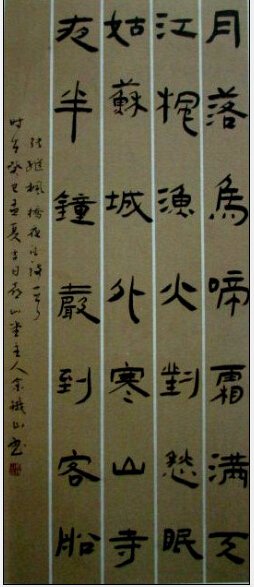 月落烏啼霜滿天
江楓漁火對愁眠
姑蘇城外寒山寺
夜半鐘聲到客船
張繼楓橋夜泊詩一首
时在癸巳孟夏吉日山堂主人山书